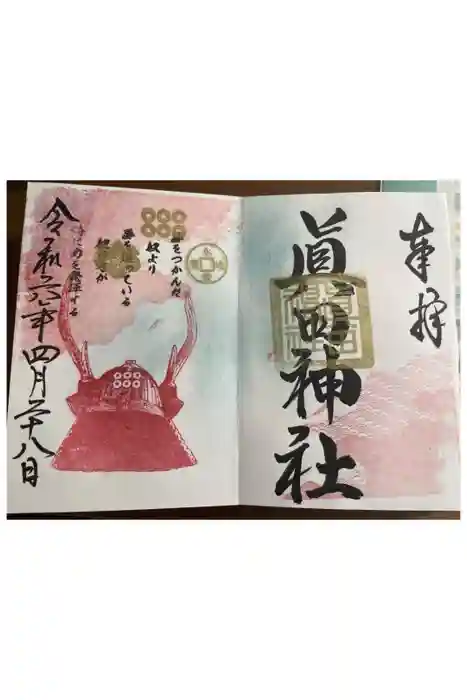 奉拝
眞田神社
夢をつかんだ
奴より
夢を追っている
奴の方が
力を発揮する
令和六年四月二十八日